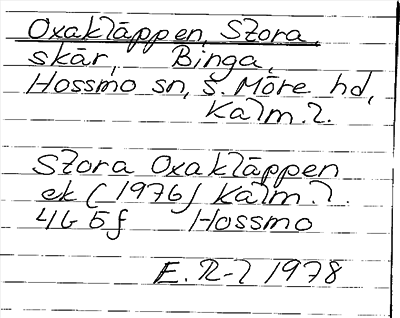 Oxakläppen, Stora,
skär, Binga,
Hossmo sn, S. Möre hd,
Kalm. l.
Stora Oxakläppen
ek (1976) Kalm. l.
4G 5f Hossmo
E. R-l 1978